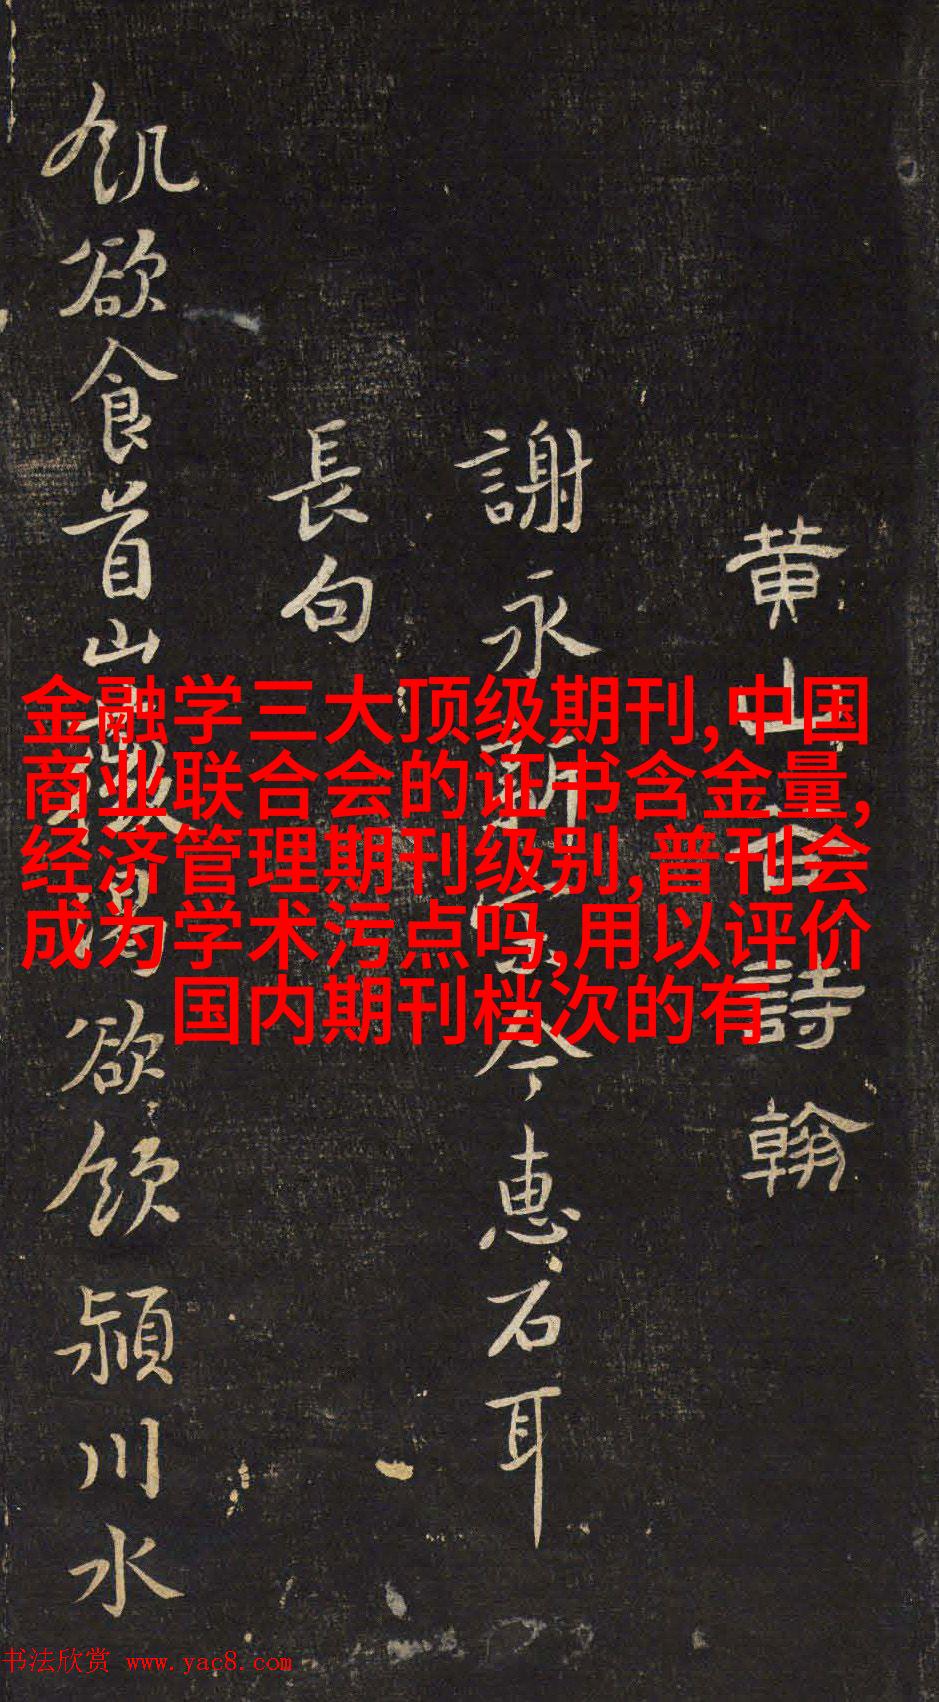 黄山谷詩翰
謝永新宰今惠石耳
長句
飢欲食首山薇渴欲飲潁川水
金融学三大顶级期刊,中国
商业联合会的证书含金量,
经济管理期刊级别,普刊会
成为学术污点吗,用以评价
国内期刊档次的有
书法欣赏 www.yac8.com